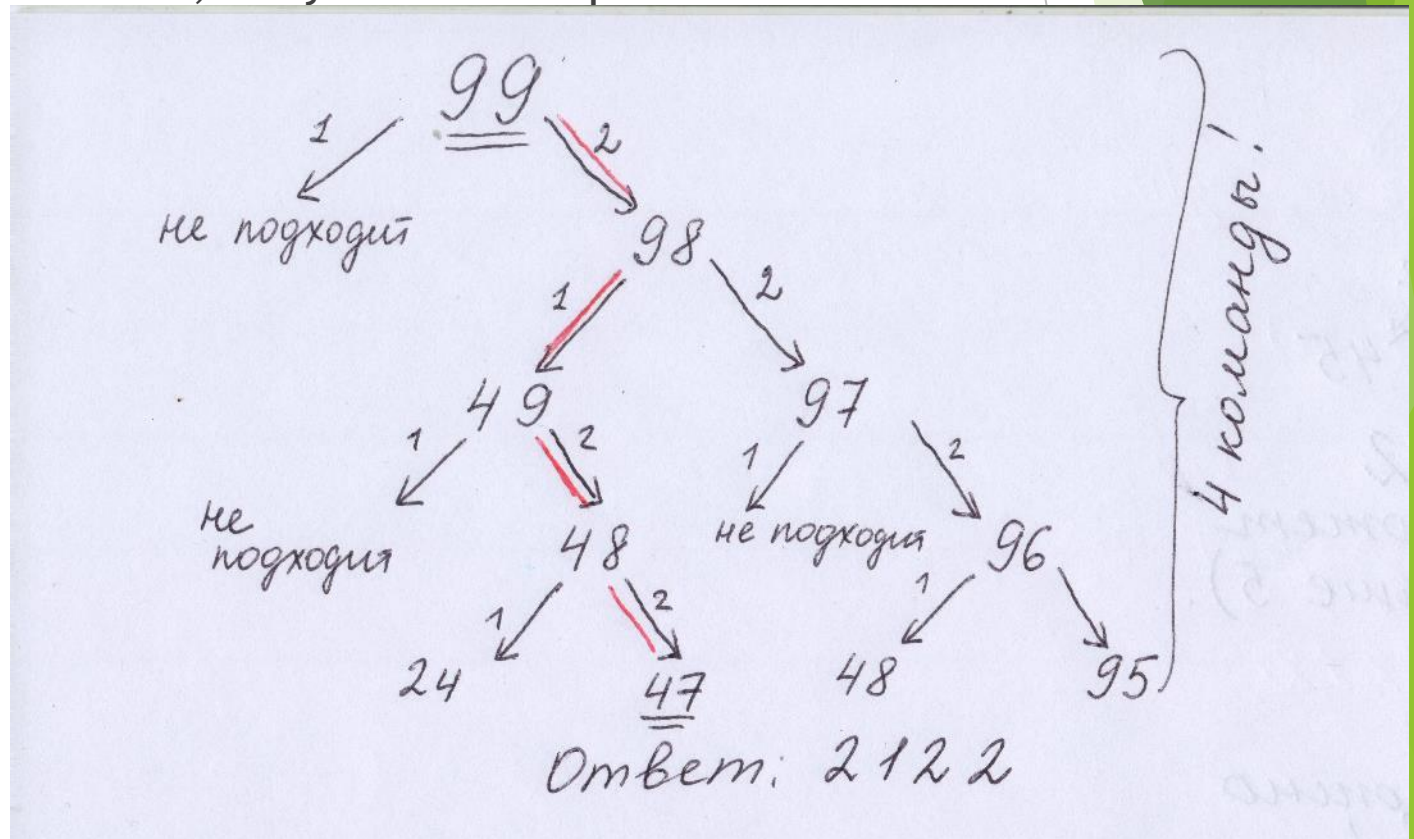 99
1 2
не подходит
98
1 2
49 97
1 2 1 2
не
подходит
48 не подходит 96
1 2 1
24 47 48 95
4 команды!
Ответ: 2122